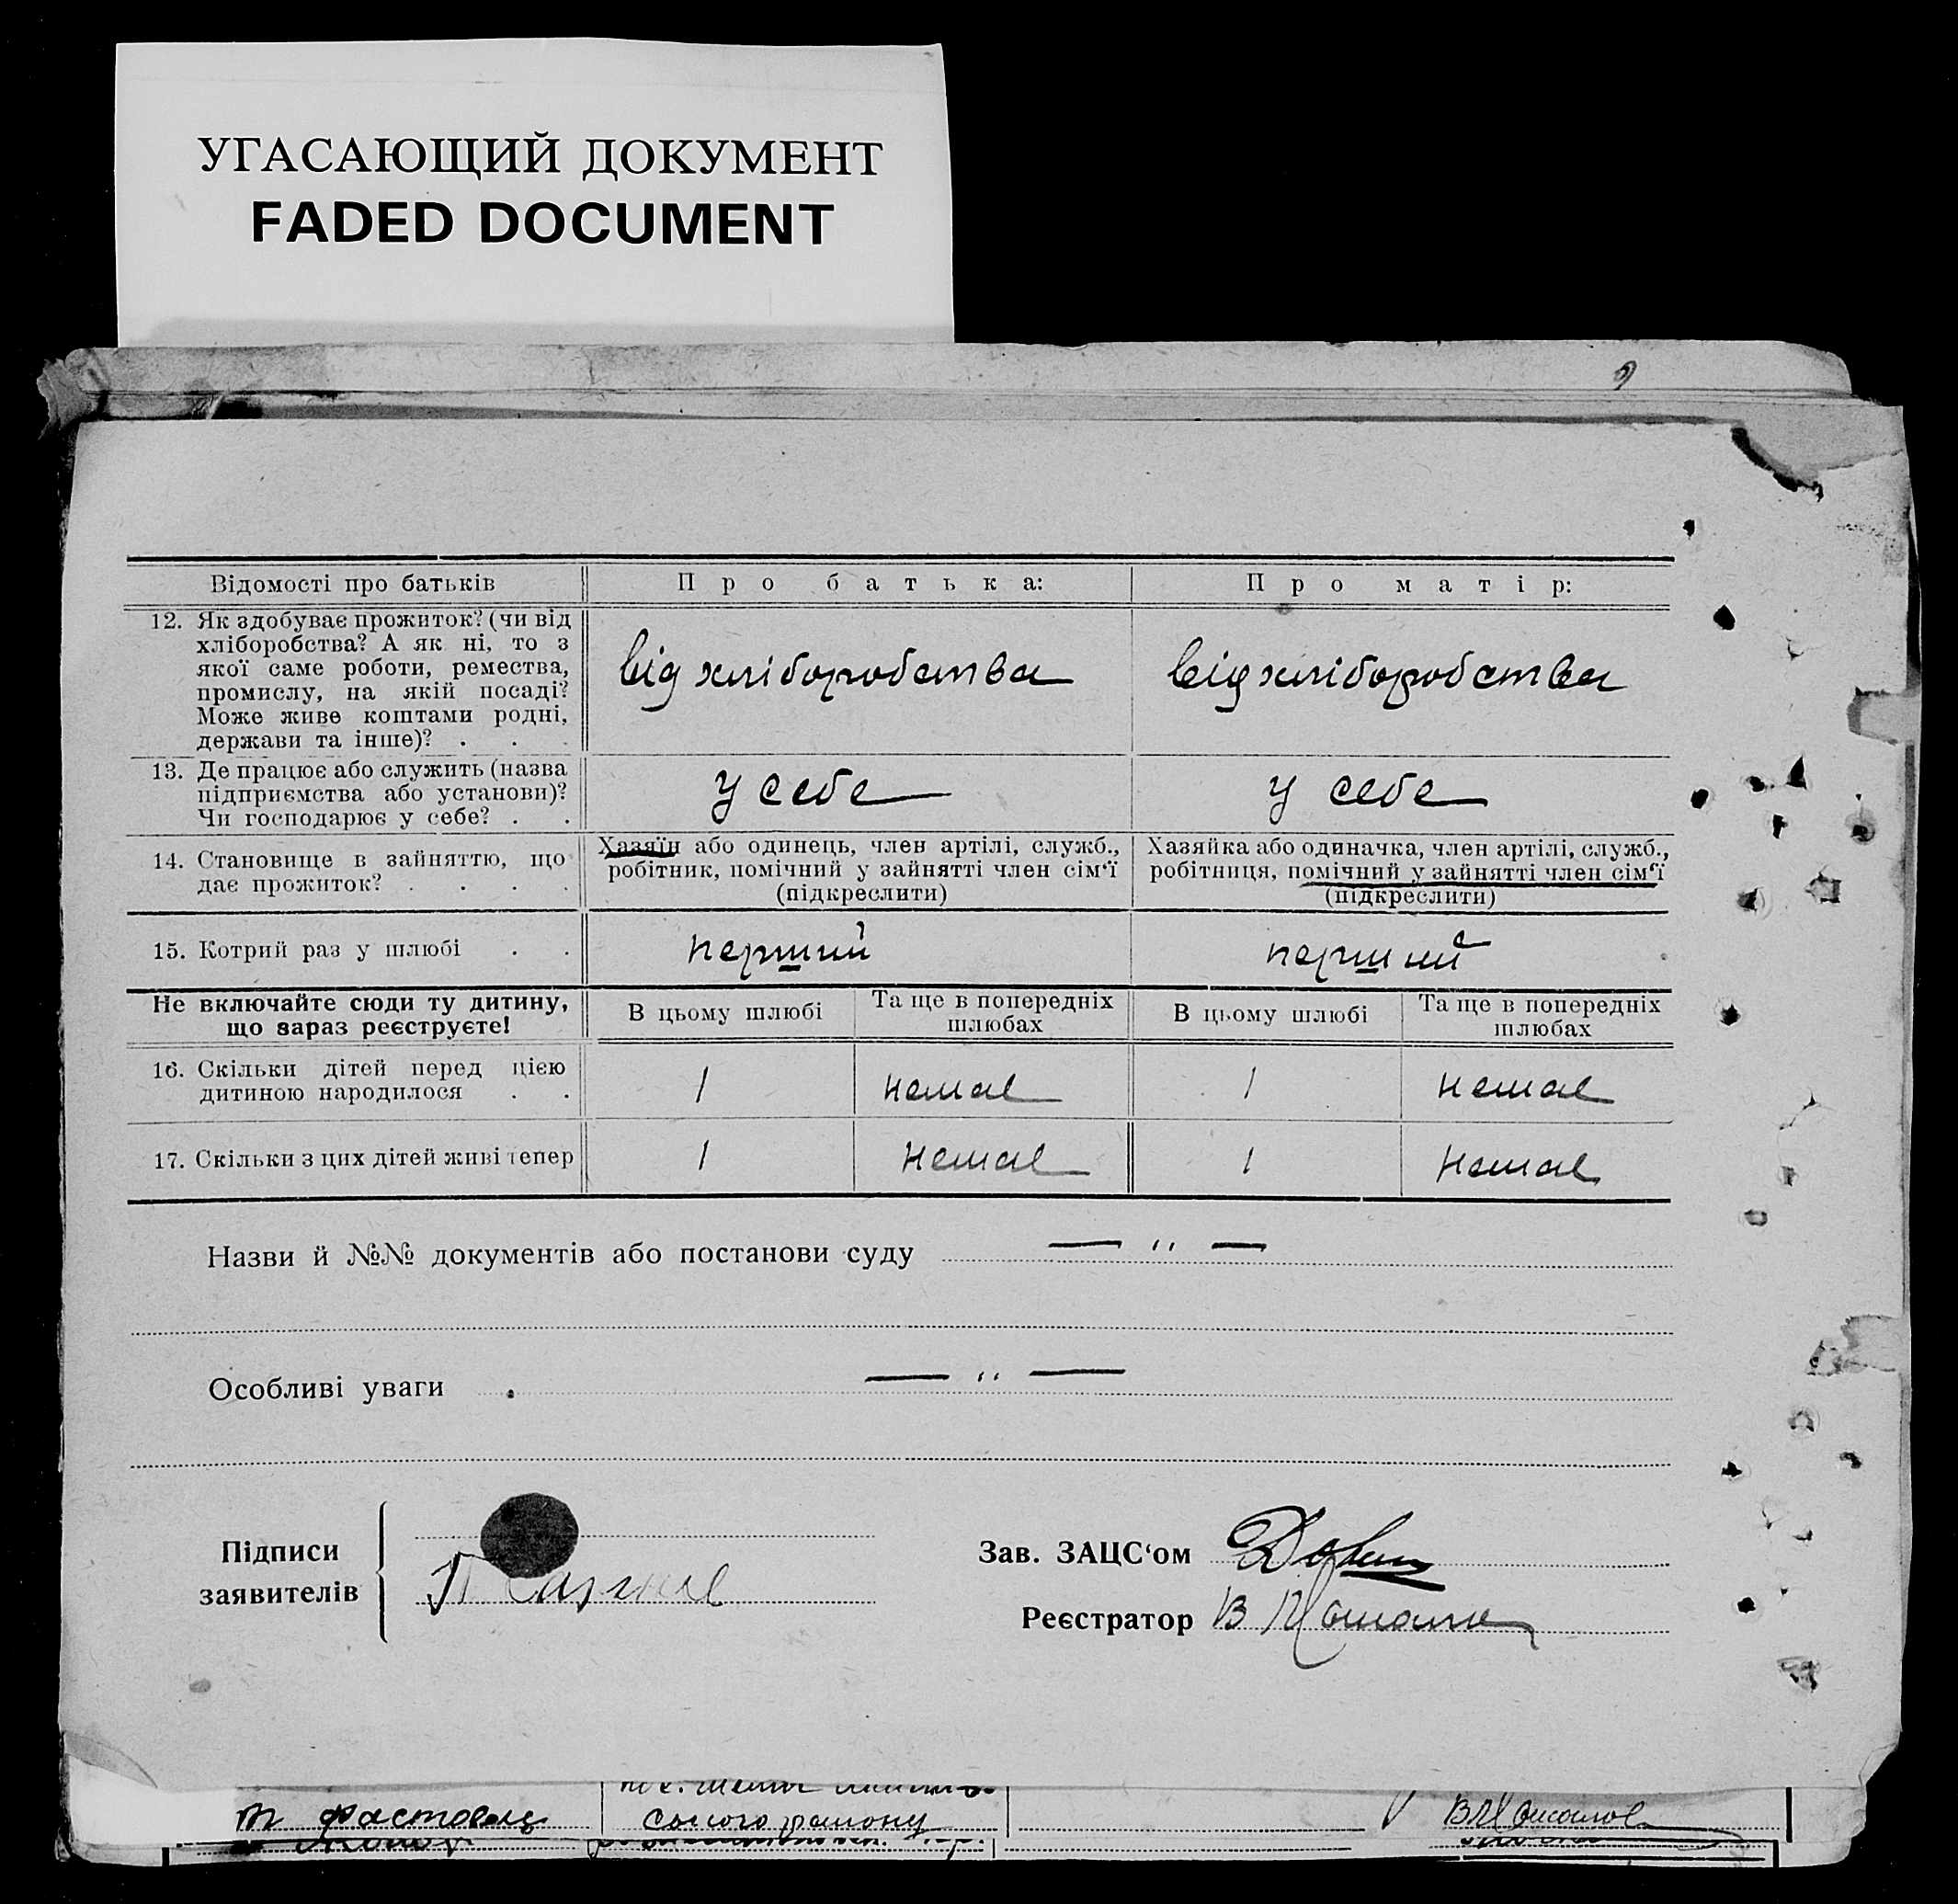 УГАСАЮЩИЙ ДОКУМЕНТ
FADED DOCUMENT
9
Відомості про батьків
Про батька:
Про матір:
12. Як здобуває прожиток? (чи від
хліборобства? А як ні, то з
якої саме роботи, ремества,
промислу, на якій посаді?
Може живе коштами родні,
держави та інше)? . . .
від хліборобства
від хліборобства
13. Де працює або служить (назва
підприємства або установи)?
Чи господарює у себе? . .
у себе
у себе
14. Становище в зайняттю, що
дає прожиток? . . . .
Хазяїн або одинець, член артілі, служб.,
робітник, помічний у зайнятті член сім‘ї
(підкреслити)
Хазяйка або одиначка, член артілі, служб.,
робітниця, помічний у зайнятті член сім‘ї
(підкреслити)
15. Котрий раз у шлюбі . .
перший
перший
Не включайте сюди ту дитину,
що зараз реєструєте!
В цьому шлюбі
Та ще в попередніх
шлюбах
В цьому шлюбі
Та ще в попередніх
шлюбах
16. Скільки дітей перед цією
дитиною народилося . .
1
немає
1
немає
17. Скільки з цих дітей живі тепер
1
немає
1
немає
Назви й №№ документів або постанови суду — „ —
Особливі уваги — „ —
Підписи
заявителів
Зав. ЗАЦС‘ом
Реєстратор В
Фастовець
району